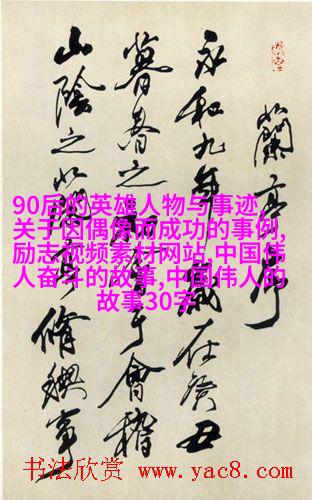 蘭亭序
永和九年歲在癸丑
暮春之于會稽
山陰之蘭亭脩禊事
90后的英雄人物与事迹,
关于因偶像而成功的事例,
励志视频素材网站,中国伟
人奋斗的故事,中国伟人的
故事30字
书法欣赏 www.yac8.com